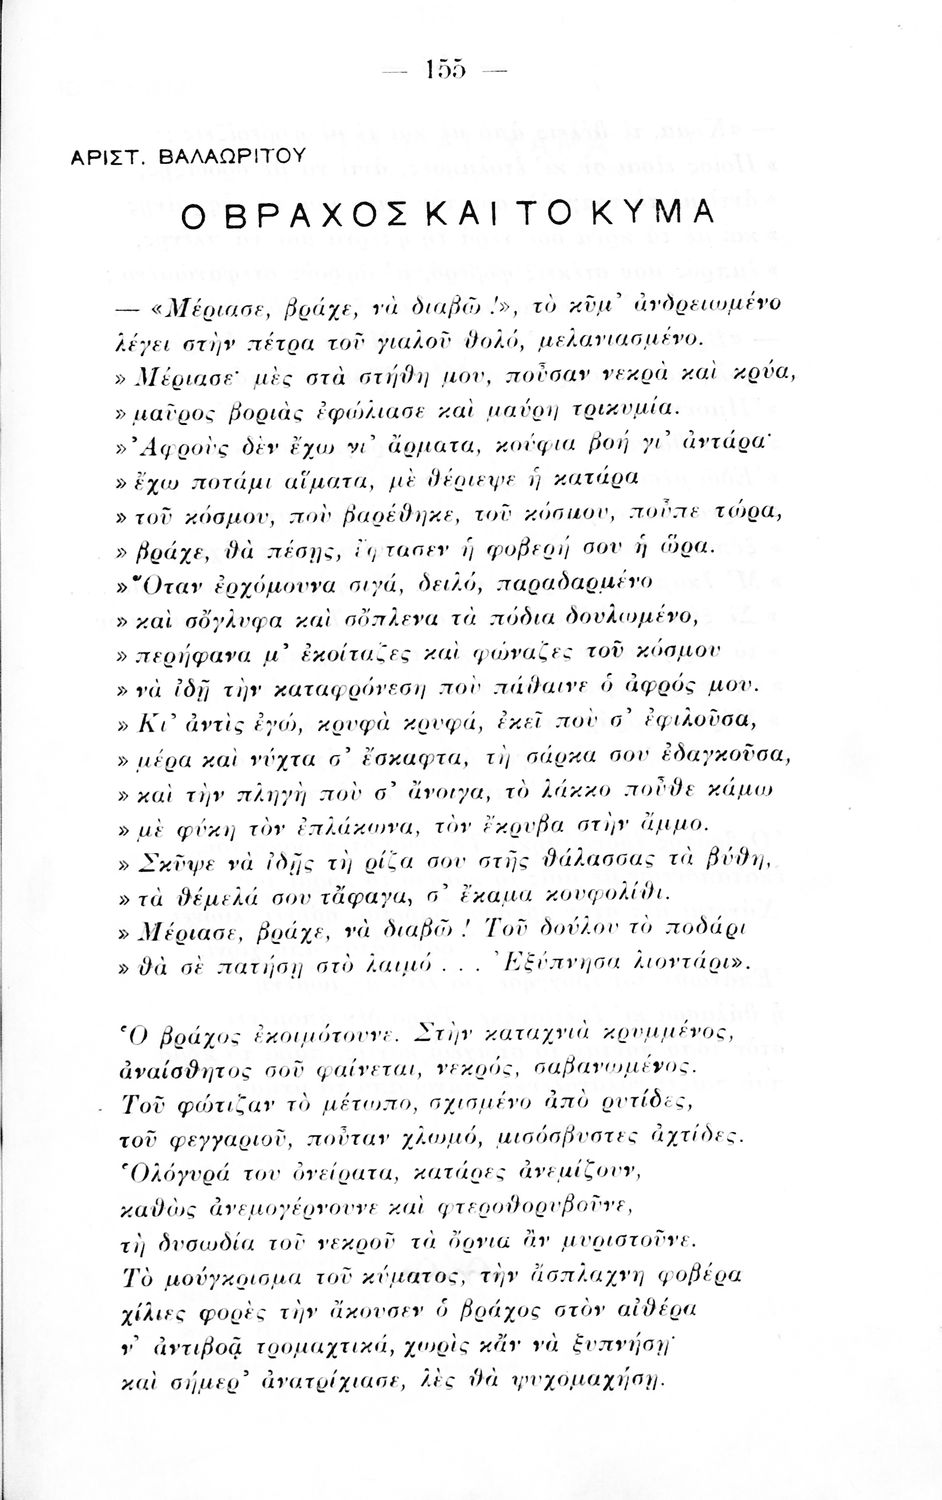 — 155 —
ΑΡΙΣΤ. ΒΑΛΑΩΡΙΤΟΥ
Ο ΒΡΑΧΟΣ ΚΑΙ ΤΟ ΚΥΜΑ
— «Μέριασε, βράχε, νὰ διαβῶ !», τὸ κῦμ’ ἀνδρειωμένο
λέγει στὴν πέτρα τοῦ γιαλοῦ θολό, μελανιασμένο.
» Μέριασε· μὲς στὰ στήθη μου, ποὖσαν νεκρὰ καὶ κρύα,
» μαῦρος βοριὰς ἐφώλιασε καὶ μαύρη τρικυμία.
» Ἀφροὺς δὲν ἔχω γι’ ἄρματα, κούφια βοὴ γι’ ἀντάρα·
» ἔχω ποτάμι αἵματα, μὲ θέριεψε ἡ κατάρα
» τοῦ κόσμου, ποὺ βαρέθηκε, τοῦ κόσμου, ποὖπε τώρα,
» βράχε, θὰ πέσῃς, ἔφτασεν ἡ φοβερή σου ἡ ὥρα.
» Ὅταν ἐρχόμουνα σιγά, δειλό, παραδαρμένο
» καὶ σὄγλυφα καὶ σὄπλενα τὰ πόδια δουλωμένο,
» περήφανα μ’ ἐκοίταζες καὶ φώναζες τοῦ κόσμου
» νὰ ἰδῇ τὴν καταφρόνεση ποὺ πάθαινε ὁ ἀφρός μου.
» Κι’ ἀντὶς ἐγώ, κρυφὰ κρυφά, ἐκεῖ ποὺ σ’ ἐφιλοῦσα,
» μέρα καὶ νύχτα σ’ ἔσκαφτα, τὴ σάρκα σου ἐδαγκοῦσα,
» καὶ τὴν πληγὴ ποὺ σ’ ἄνοιγα, τὸ λάκκο ποὖθε κάμω
» μὲ φύκη τὸν ἐπλάκωνα, τὸν ἔκρυβα στὴν ἄμμο.
» Σκῦψε νὰ ἰδῇς τὴ ρίζα σου στῆς θάλασσας τὰ βύθη,
» τὰ θέμελά σου τἄφαγα, σ’ ἔκαμα κουφολίθι.
» Μέριασε, βράχε, νὰ διαβῶ ! Τοῦ δούλου τὸ ποδάρι
» θὰ σὲ πατήσῃ στὸ λαιμό . . . Ἐξύπνησα λιοντάρι».
Ὁ βράχος ἐκοιμότουνε. Στὴν καταχνιὰ κρυμμένος,
ἀναίσθητος σοῦ φαίνεται, νεκρός, σαβανωμένος.
Τοῦ φώτιζαν τὸ μέτωπο, σχισμένο ἀπὸ ρυτίδες,
τοῦ φεγγαριοῦ, ποὖταν χλωμό, μισόσβυστες ἀχτίδες.
Ὁλόγυρά του ὀνείρατα, κατάρες ἀνεμίζουν,
καθὼς ἀνεμογέρνουνε καὶ φτεροθορυβοῦνε,
τὴ δυσωδία τοῦ νεκροῦ τὰ ὄρνια ἂν μυριστοῦνε.
Τὸ μούγκρισμα τοῦ κύματος, τὴν ἄσπλαχνη φοβέρα
χίλιες φορὲς τὴν ἄκουσεν ὁ βράχος στὸν αἰθέρα
ν’ ἀντιβοᾷ τρομαχτικά, χωρὶς κἄν νὰ ξυπνήσῃ·
καὶ σήμερ’ ἀνατρίχιασε, λὲς θὰ ψυχομαχήσῃ.